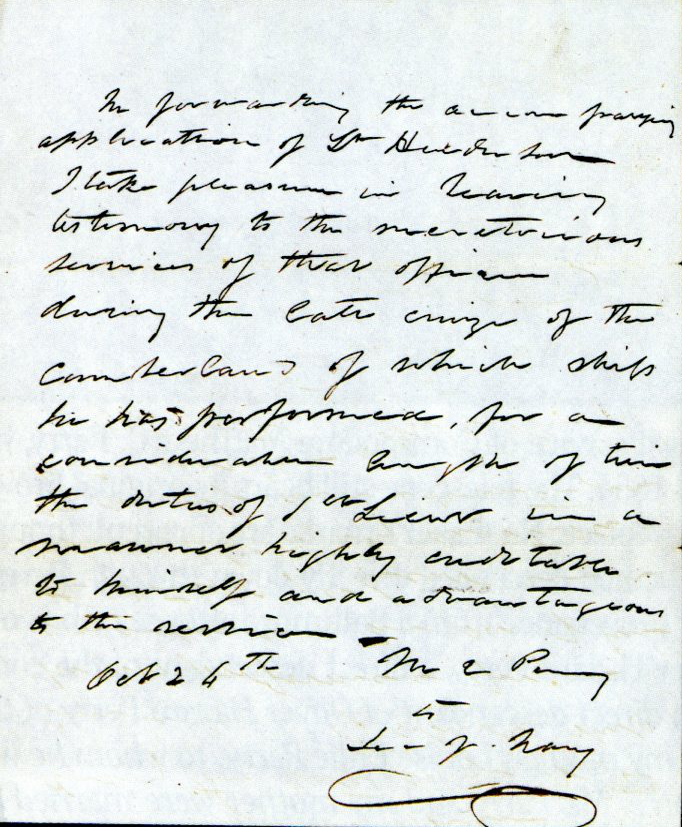 In forwarding the accompanying
application of Lt Henderson
I take pleasure in bearing
testimony to the meritorious
services of that officer
during the late cruize of the
Cumberland of which ship
he has performed, for a
considerable length of time
the duties of 1st Lieut in a
manner highly creditable
to himself and advantageous
to the service
Oct 24th M C Perry
to
Sec y. Navy